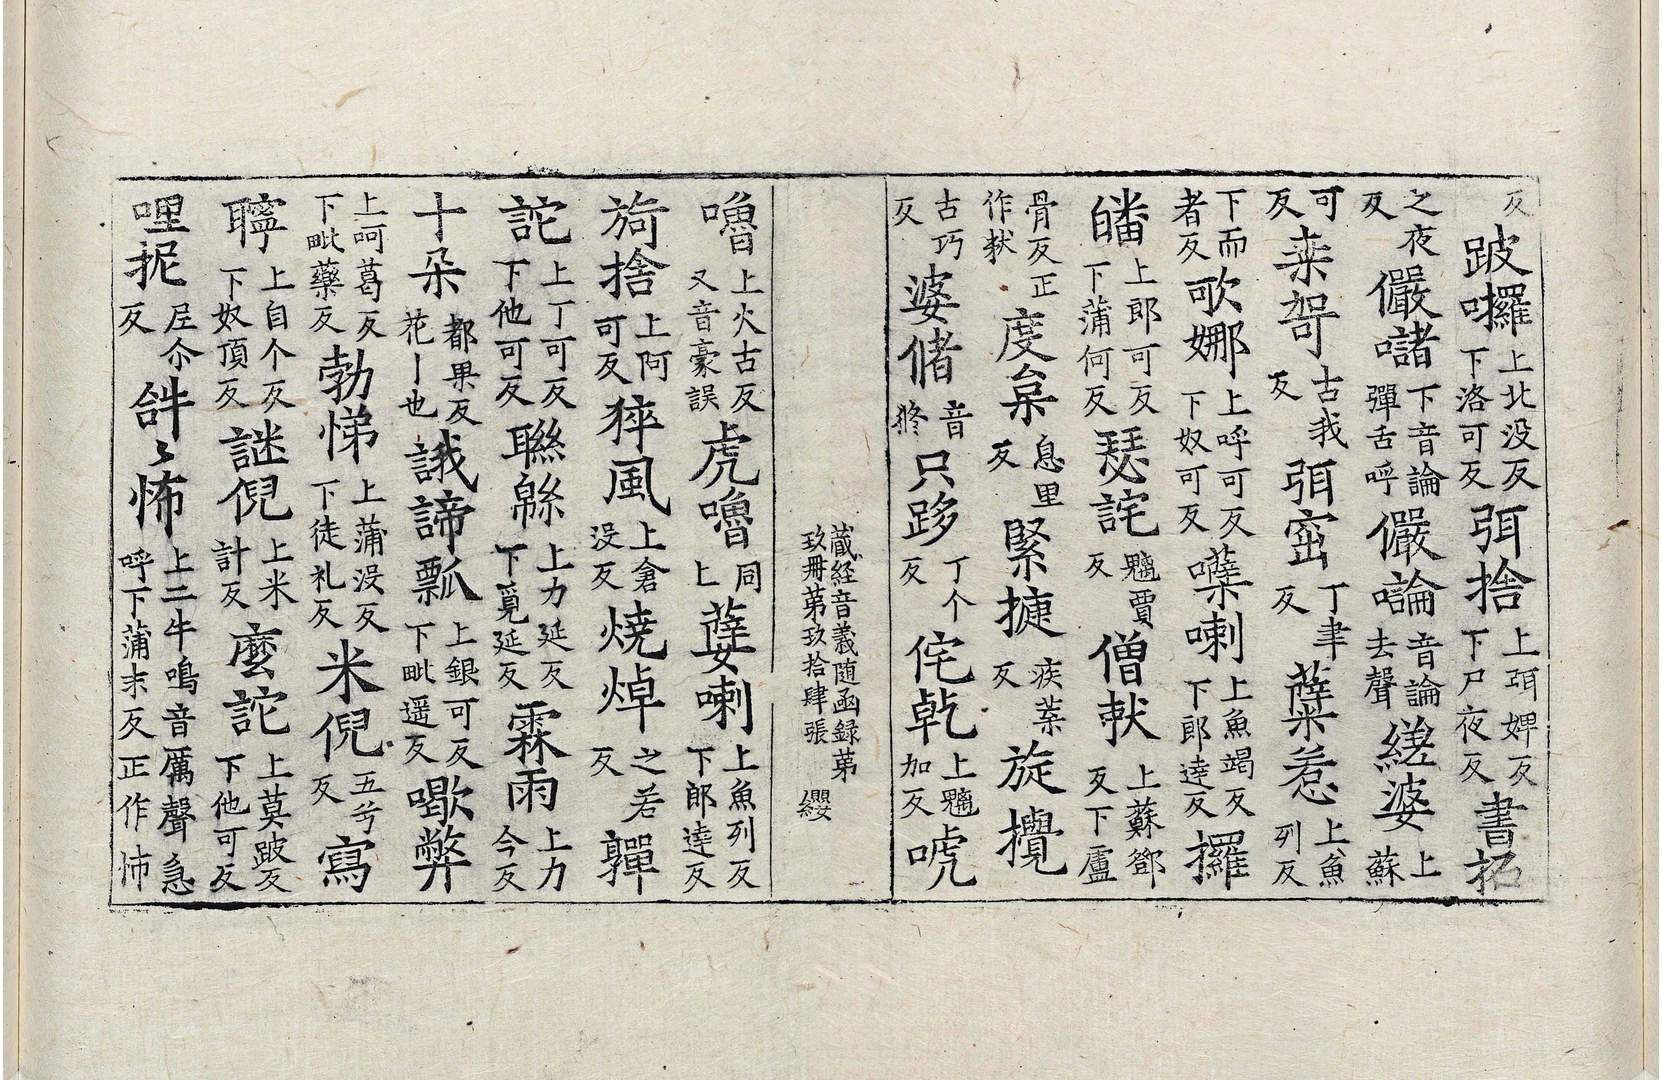 反跛囉上北没反下洛可反弭捨上弭婢反下尸夜反書拓
之夜反儼㘜下音論彈舌呼儼論音論去聲縒婆上蘇
可反枲哿古我反弭窋丁聿反蘖惹上魚列反
下而者反歌娜上呼可反下奴可反囋喇上魚竭反下郎達反攞
皤上郎可反下蒲何反瑟詫魑賈反僧㺉上蘇鄧反下盧
骨反正作㹤度枲息里反緊捷疾葉反旋攪
古巧反婆偹音俻只跢丁个反侘乾上魑加反唬
藏経音義随函録第玖冊第玖拾肆張 纓
嚕上火古反又音豪誤虎嚕同上蘖喇上魚列反下郎達反
旑捨上阿可反猝風上倉没反燒焯之若反嚲
詑上丁可反下他可反聮緜上力延反下覓延反霖雨上力今反
十朵都果反花丨也誐諦瓢上銀可反下毗遥反歇弊
上呵葛反下毗藥反勃悌上蒲没反下徒礼反米倪五兮反寫
聹上自个反下奴頂反謎倪上米計反麼詑上莫跛反下他可反
哩抳𡰱尒反吽〻怖上二牛鳴音厲聲急呼下蒲末反正作㤄